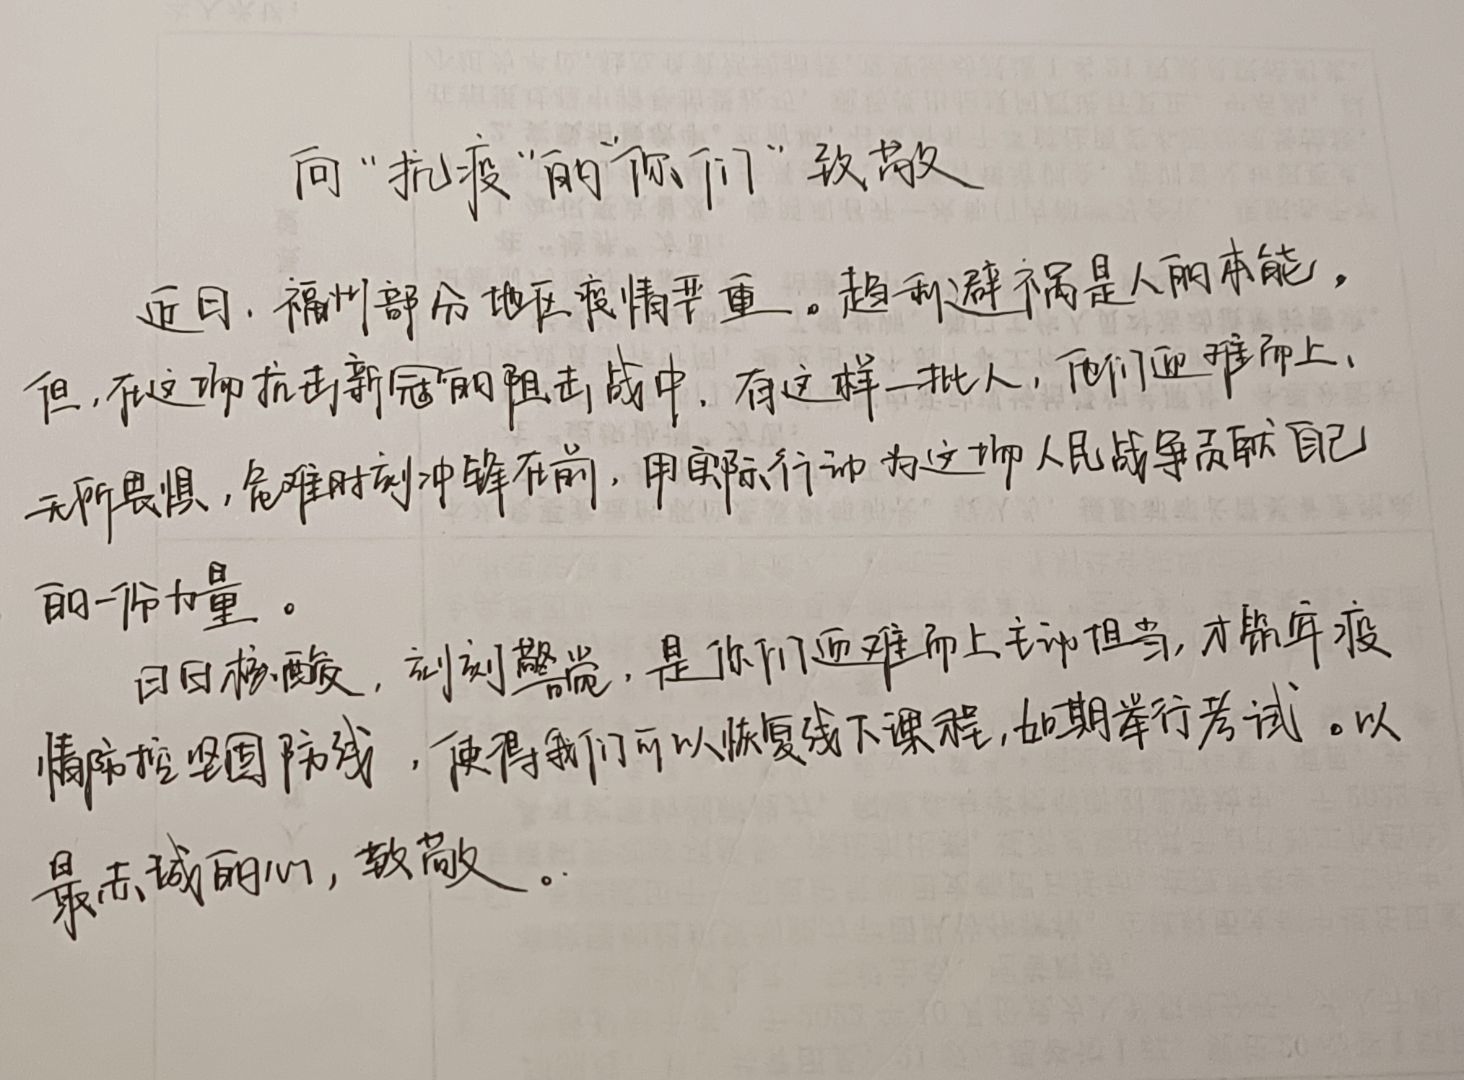 向“抗疫”的“你们”致敬
近日，福州部分地区疫情严重。趋利避祸是人的本能。
但，在这场抗击新冠的阻击战中，有这样一批人，他们迎难而上、
无所畏惧，危难时刻冲锋在前，用实际行动为这场人民战争贡献自己
的一份力量。
日日核酸，刻刻警觉，是你们迎难而上主动担当，才筑牢疫
情防控坚固防线，使得我们可以恢复线下课程，如期举行考试。以
最赤诚的心，致敬。